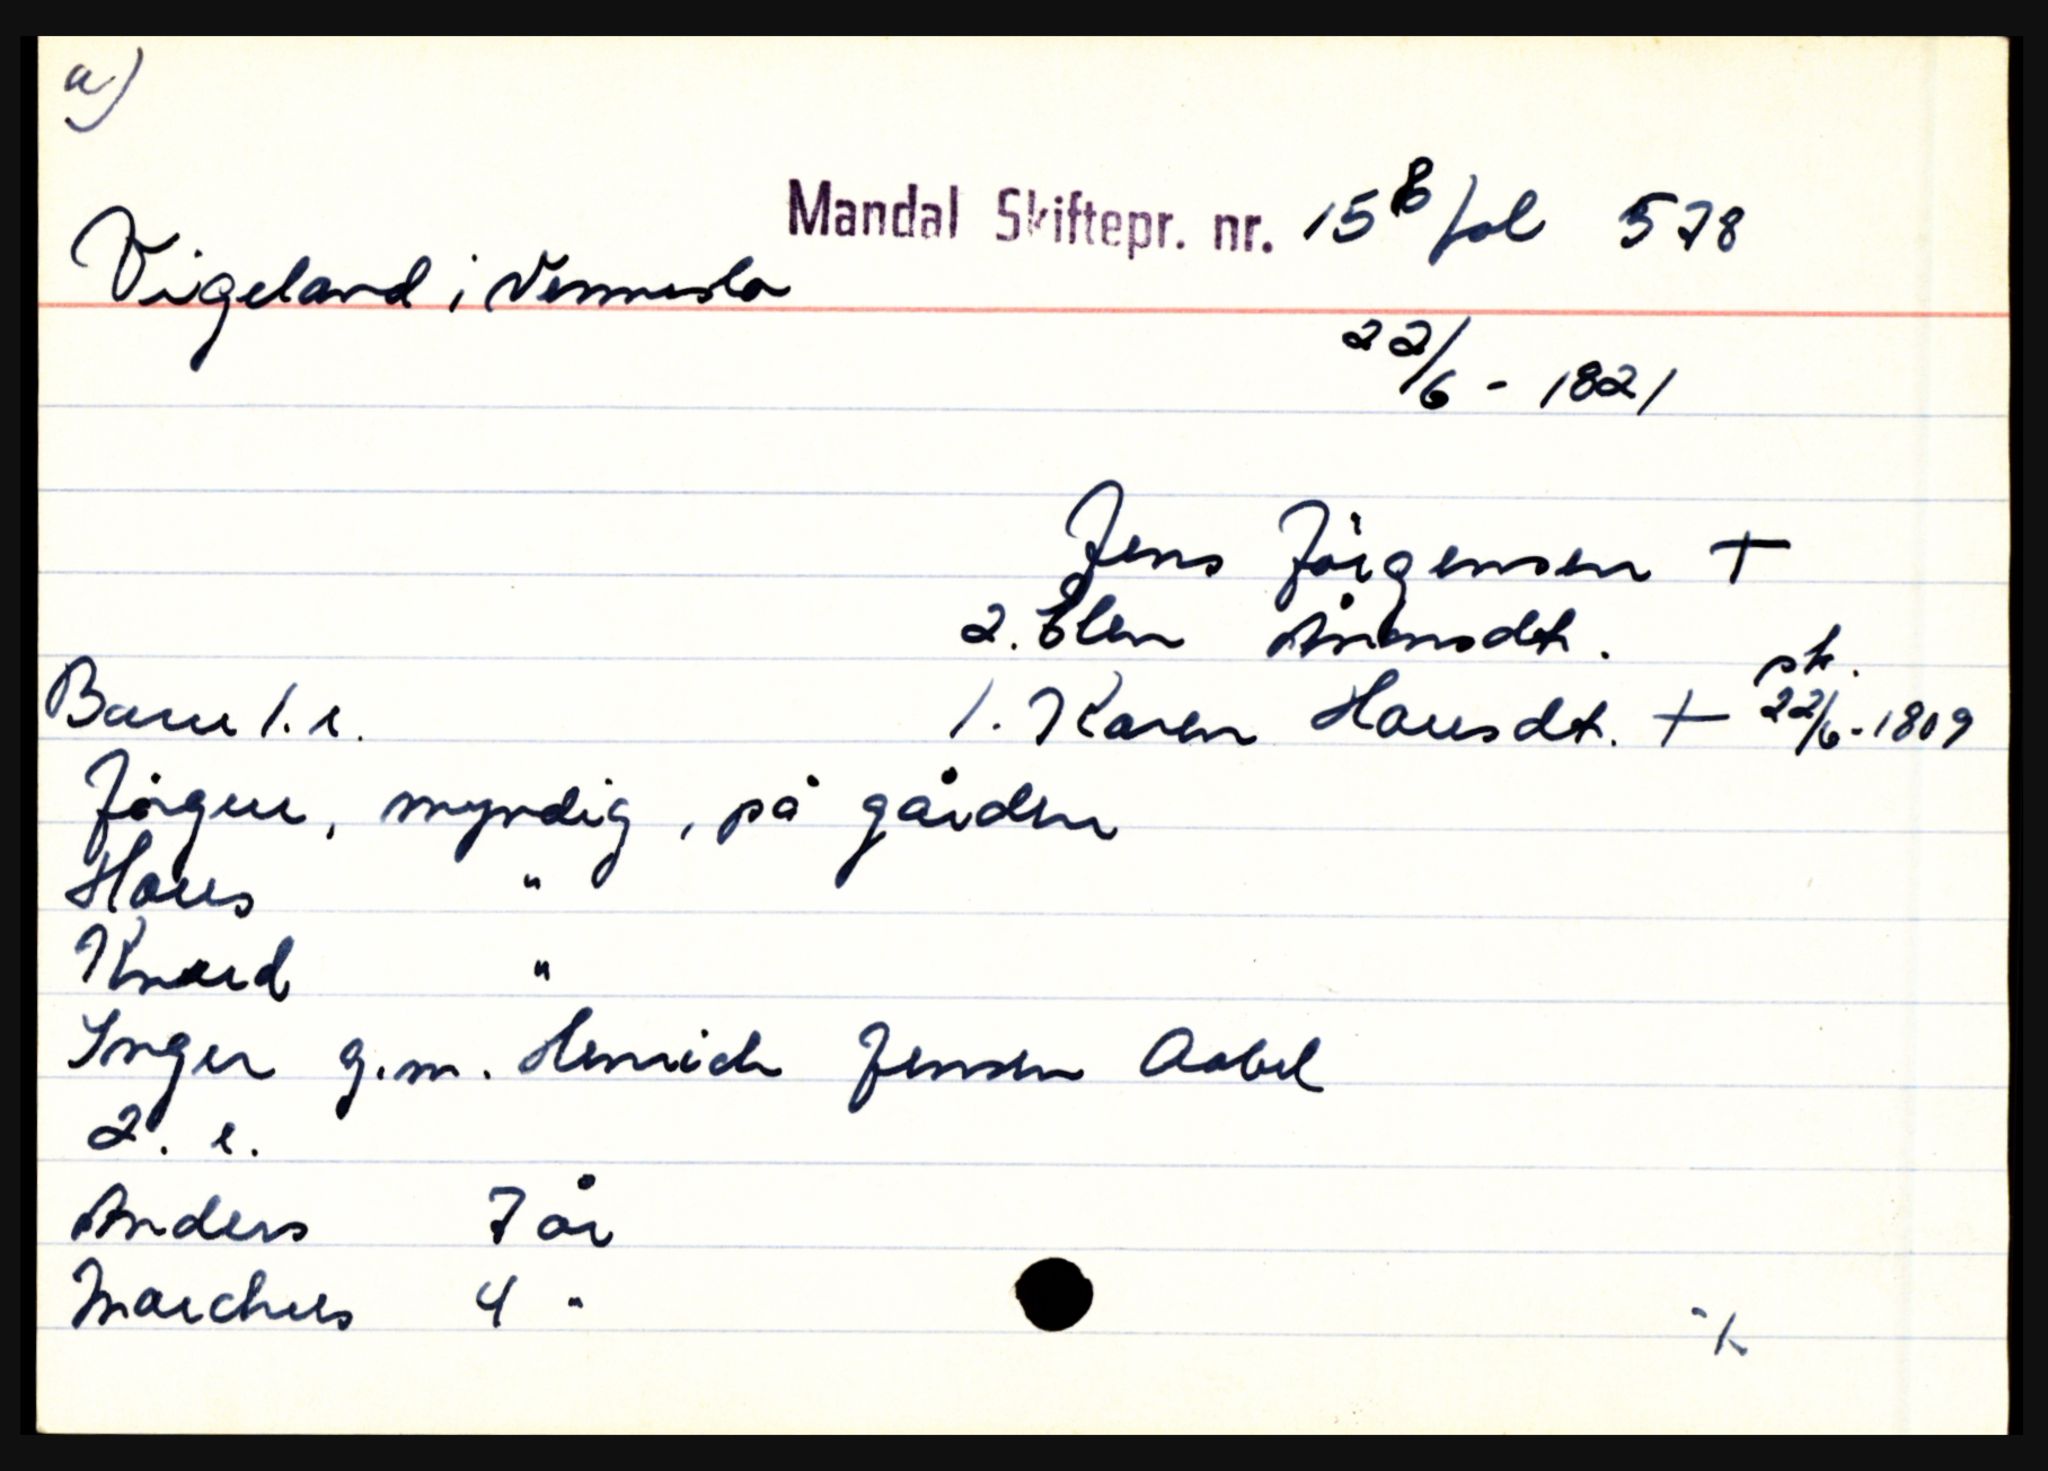 a)
Mandal Skiftepr. nr. 15 B fol 578
Vigeland i Vennesla
22/6 - 1821
Jens Jörgensen +
2. Elen Ånensdt.
Barn 1. e. 1. Karen Hansdt. + sk. 22/6-1809
Jörgen, myndig, på gården
Hans "
Knud "
Inger g.m. Henrich Jensen Aabel
2. e.
Anders 7 år
Marchus 4 "